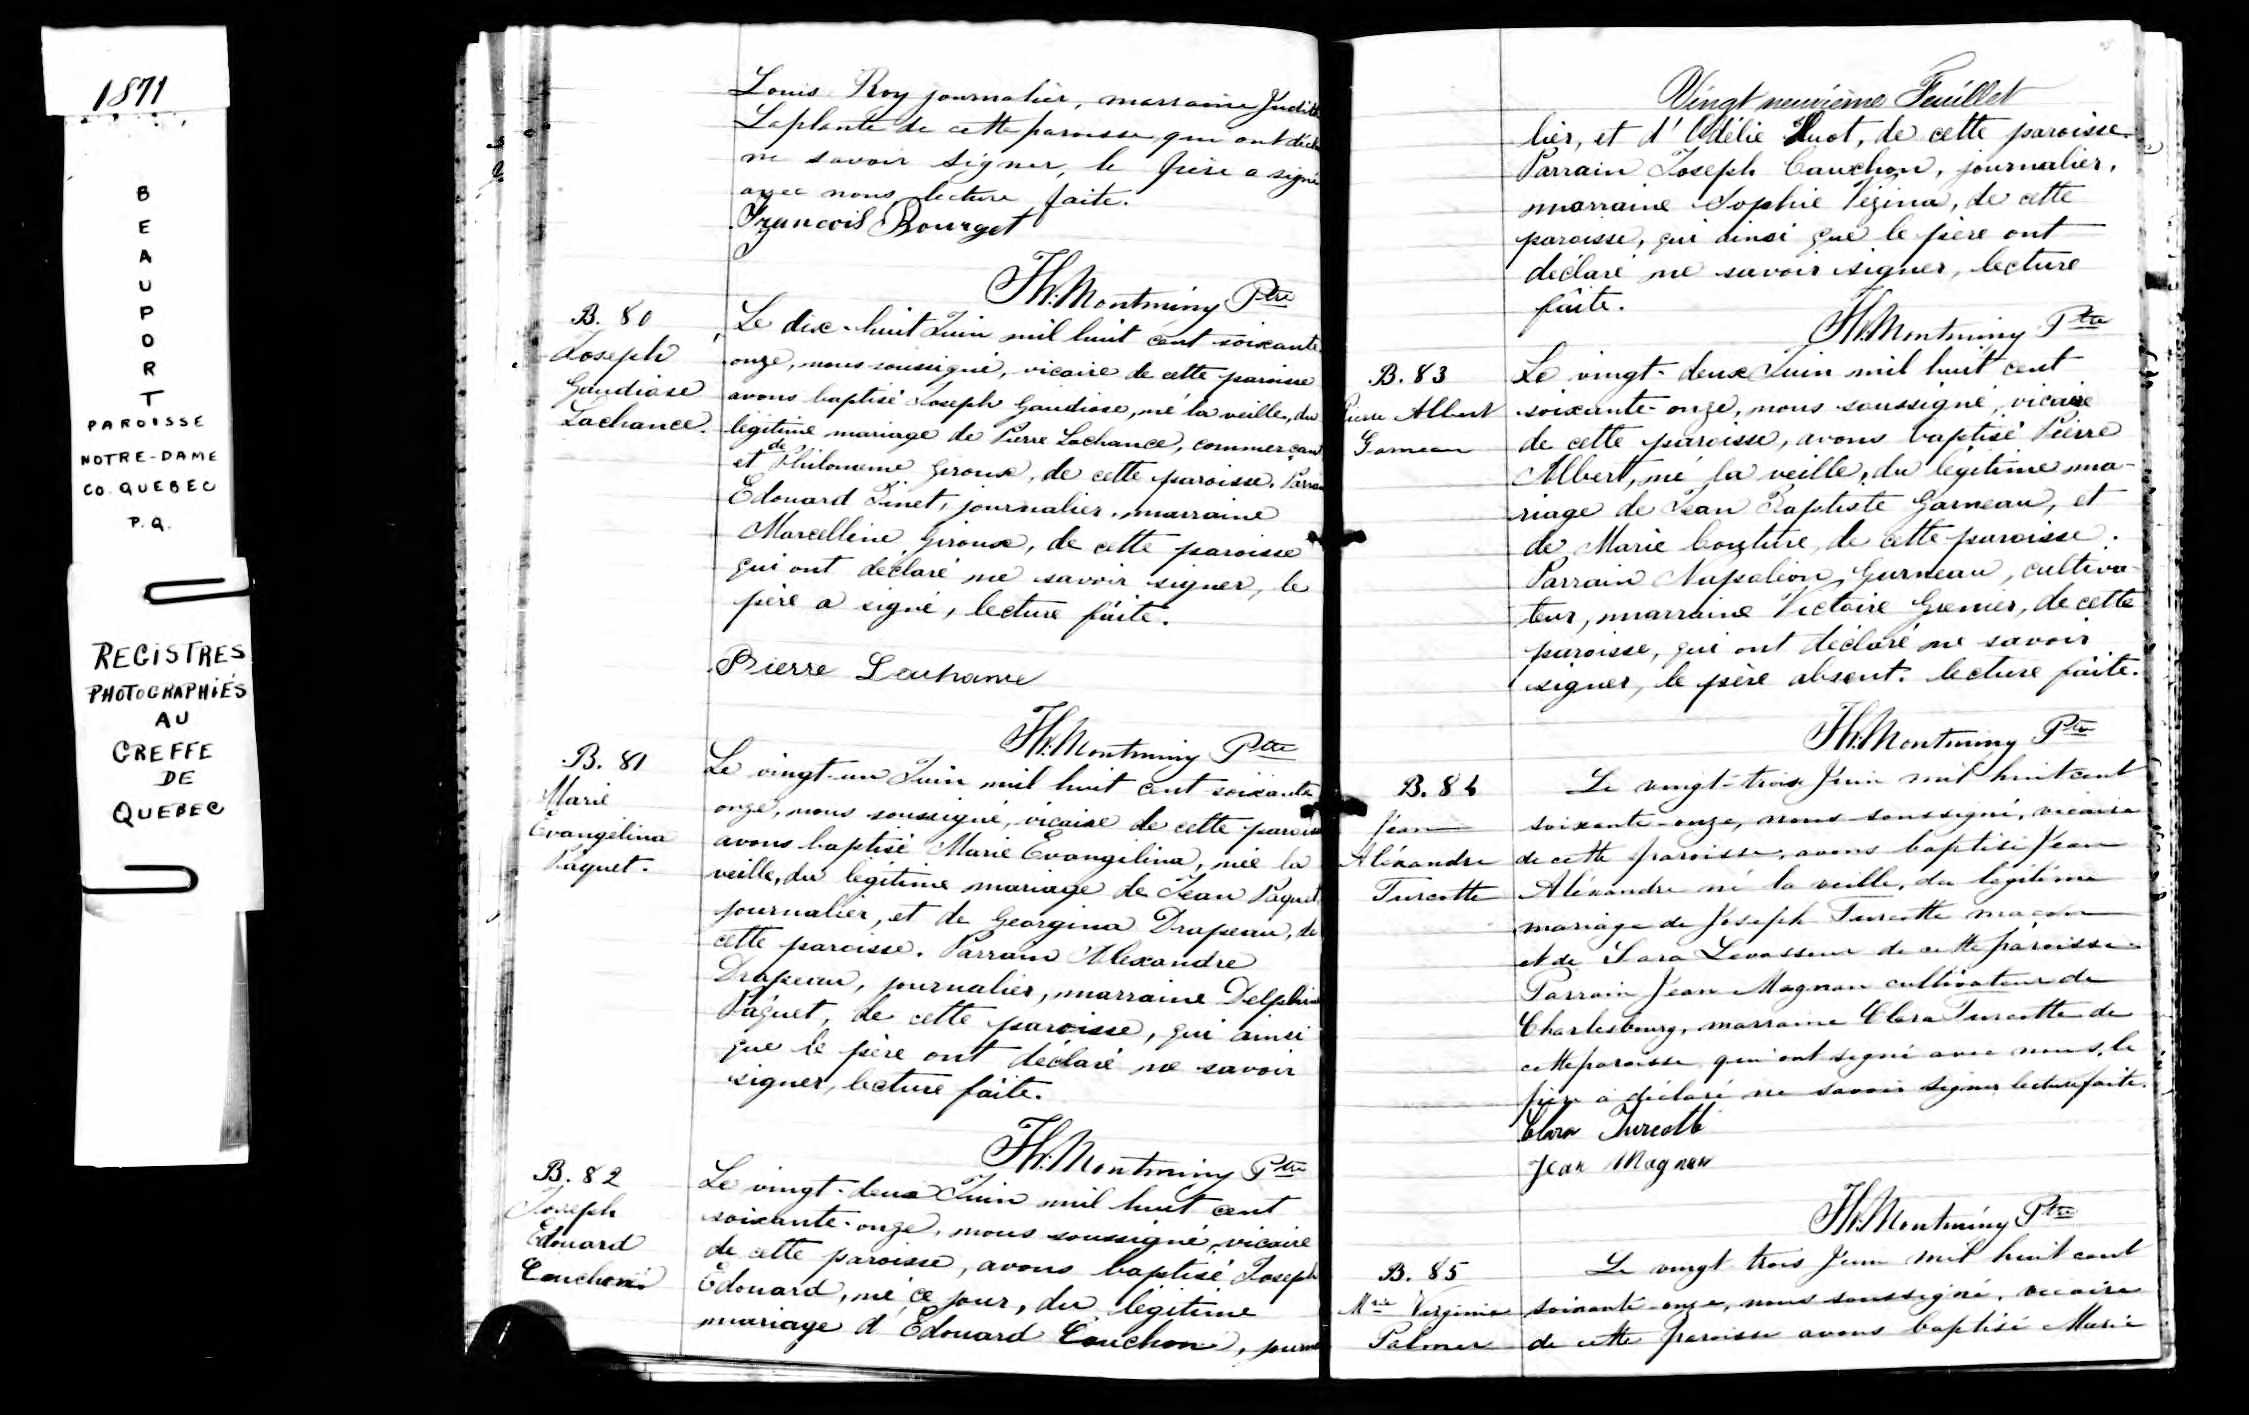 1871
BEAUPORT
PAROISSE
NOTRE-DAME
CO. QUEBEC
P.Q.
REGISTRES
PHOTOGRAPHIÉS
AU
GREFFE
DE
QUEBEC
Louis Roy journalier, marraine Judith
Laplante de cette paroisse, qui ont décl
ne savoir signer, le père a signé
avec nous, lecture faite.
François Bourget
Th. Montminy Ptre
B. 80
Joseph
Gaudiose
Lachance.
Le dix-huit Juin mil huit cent soixante
onze, nous soussigné, vicaire de cette paroisse
avons baptisé Joseph Gaudiose, né la veille, du
légitime mariage de Pierre Lachance, commerçan
et de Philomene Giroux, de cette paroisse. Parrain
Edouard Binet, journalier, marraine
Marcelline Giroux, de cette paroisse
qui ont déclaré ne savoir signer, le
père a signé, lecture faite.
Pierre Lachance
Th. Montminy Ptre
B. 81
Marie
Evangélina
Paquet.
Le vingt-un Juin mil huit cent soixante
onze, nous soussigné, vicaire de cette paroisse
avons baptisé Marie Evangélina, née la
veille, du légitime mariage de Jean Paquet
journalier, et de Georgina Drapeau, de
cette paroisse. Parrain Alexandre
Drapeau, journalier, marraine Delphine
Paquet, de cette paroisse, qui ainsi
que le père ont déclaré ne savoir
signer, lecture faite.
Th. Montminy Ptre
B. 82
Joseph
Edouard
Cauchon
Le vingt-deux Juin mil huit cent
soixante-onze, nous soussigné, vicaire
de cette paroisse, avons baptisé Joseph
Edouard, né ce jour, du légitime
mariage d'Edouard Cauchon, journa
Vingt neuvième Feuillet
lier, et d'Odélie Huot, de cette paroisse.
Parrain Joseph Cauchon, journalier,
marraine Sophie Vézina, de cette
paroisse, qui ainsi que le père ont
déclaré ne savoir signer, lecture
faite.
Th. Montminy Ptre
B. 83
Pierre Albert
Garneau
Le vingt-deux Juin mil huit cent
soixante-onze, nous soussigné, vicaire
de cette paroisse, avons baptisé Pierre
Albert, né la veille, du légitime ma-
riage de Jean Baptiste Garneau, et
de Marie Couture, de cette paroisse.
Parrain Napoléon Garneau, cultiva-
teur, marraine Victoire Grenier, de cette
paroisse, qui ont déclaré ne savoir
signer, le père absent. lecture faite.
Th. Montminy Ptre
B. 84
Jean
Aléxandre
Turcotte
Le vingt-trois Juin mil huit cent
soixante-onze, nous soussigné, vicaire
de cette paroisse, avons baptisé Jean
Aléxandre né la veille, du légitime
mariage de Joseph Turcotte maçon
et de Sara Levasseur de cette paroisse
Parrain Jean Magnan cultivateur de
Charlesbourg, marraine Clara Turcotte de
cette paroisse qui ont signé avec nous, le
père a déclaré ne savoir signer lecture faite.
Clara Turcotte
Jean Magnan
Th. Montminy Ptre
B. 85
Mrie Virginie
Palmer
Le vingt trois Juin mil huit cent
soixante-onze, nous soussigné, vicaire
de cette paroisse avons baptisé Marie